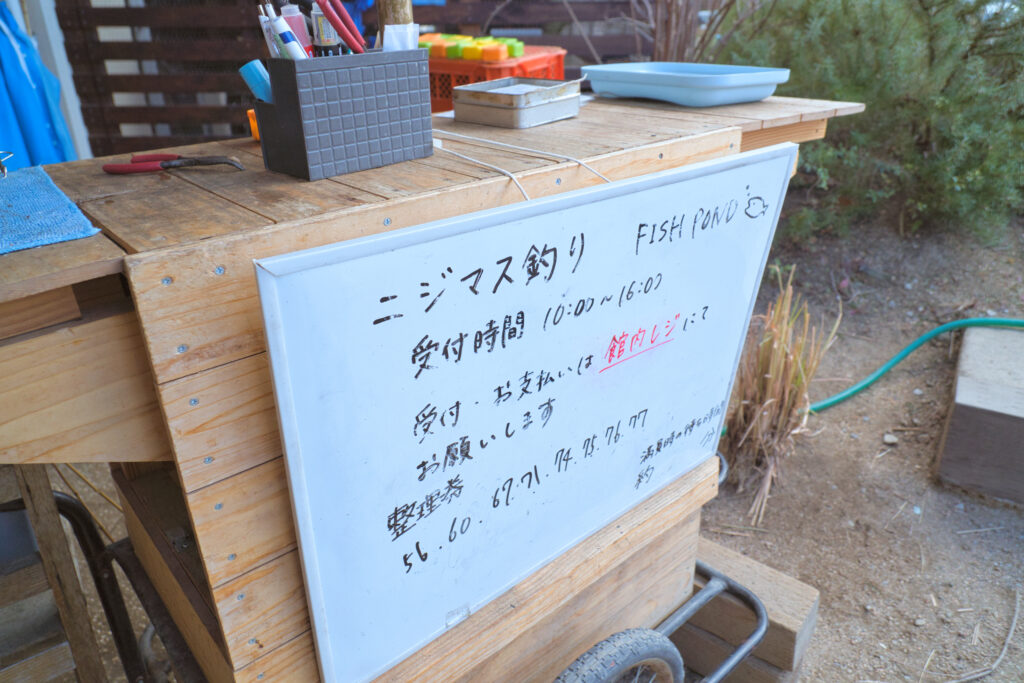 ニジマス釣り FISH POND
受付時間 10:00~16:00
受付・お支払いは館内レジにて
お願いします
整理券
56.60.67.71.74.75.76.77
満員時の待ち時間
約 分